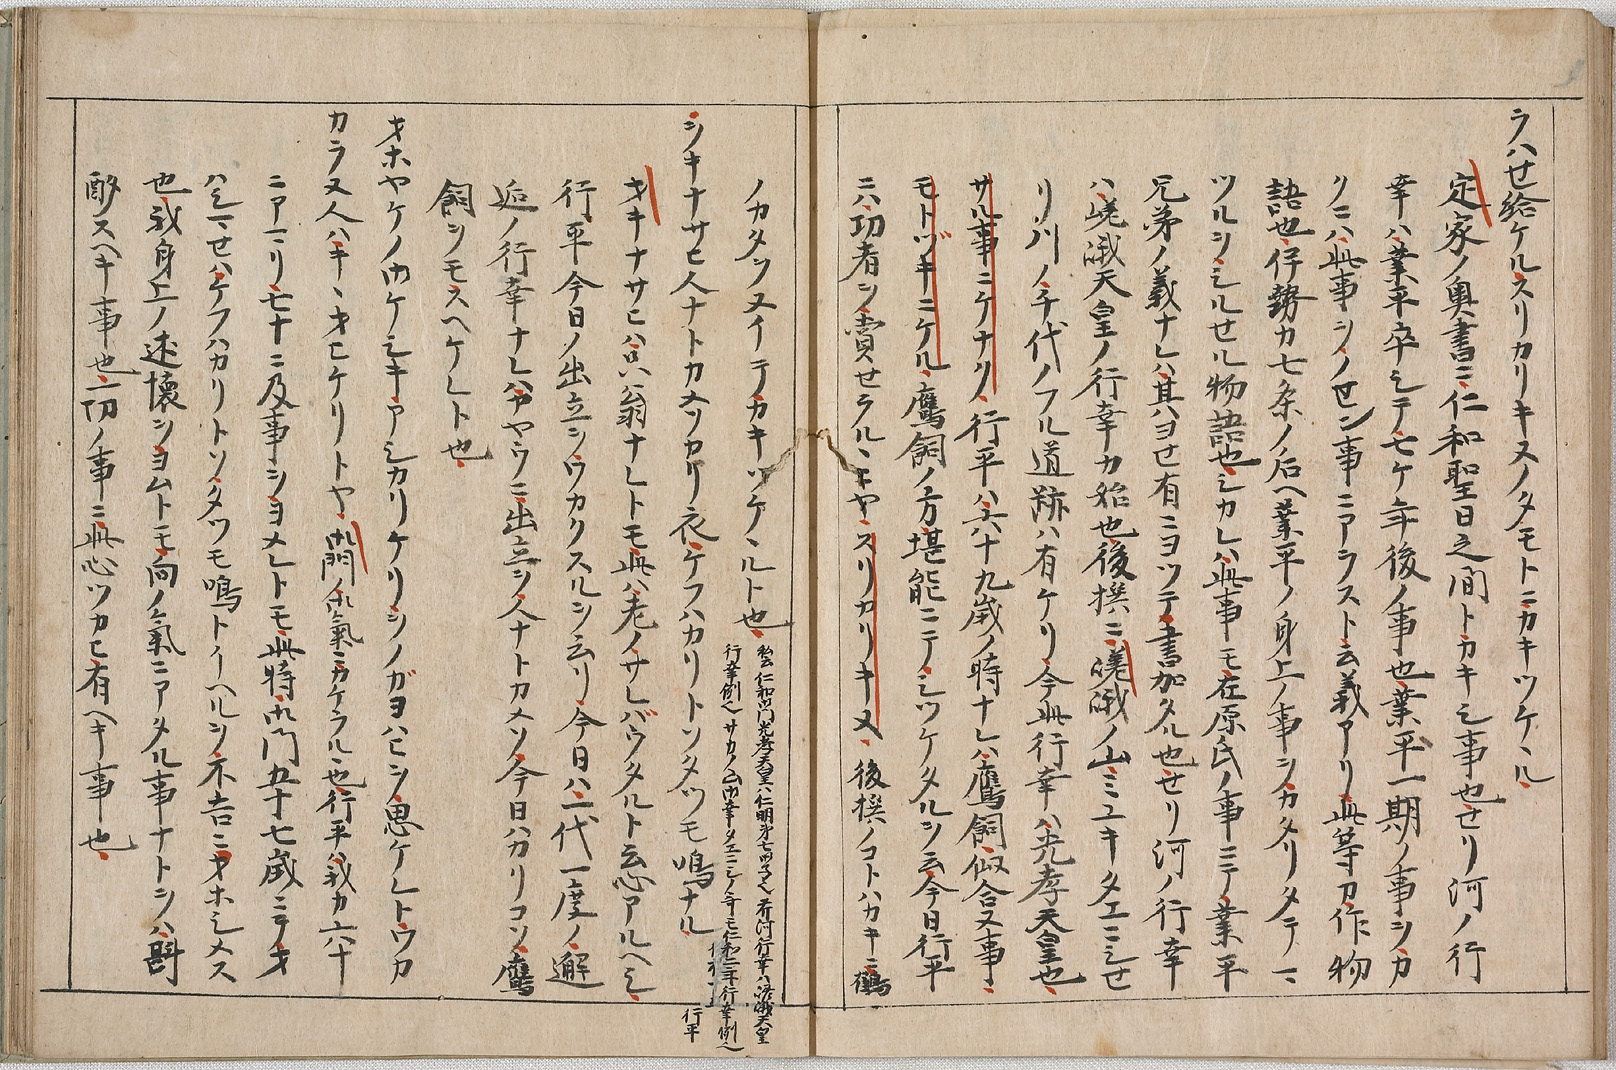 ラハせ給ケルスリカリキヌノタモトニカキツケヽル
定家ノ奥書ニ仁和聖日之間トカキシ事也せリ河ノ行
幸ハ業平卒シテ七ケ年後ノ事也業平一期ノ事シカ
クニハ此事シノせン事ニアラスト云義アリ此等カ作物
語也伊勢カ七条ノ后ヘ業平ノ身上ノ事シカタリタテマ
ツルシシルせル物語也シカレハ此事モ在原氏ノ事ニテ業平
兄弟ノ義ナレハ其ハヨせ有ニヨツテ書加タル也せリ河ノ行幸
ハ嵯峨天皇ノ行幸カ始也後撰ニ嵯峨ノ山ミユキタエニシせ
リ川ノ千代ノフル道跡ハ有ケリ今此行幸ハ光孝天皇也
サル事ニケナク行平ハ六十九歳ノ時ナレハ鷹飼似合又事
モトツキニケル鷹飼ノ方堪能ニテシツケタルシ云今日行平
ニハ切者シ賣せラルヽニヤスリカリキヌ後撰ノコトハカキニ鶴
ノカタツヌイテカキツケヽルト也
私云仁和御門光孝天皇ハ仁明第七ノ子也芹河行幸ハ嵯峨天皇
行幸例也サカノ山御幸タエニシノ哥モ仁和二年行幸例也
行平
シキナサヒ人ナトカメソカリ衣ケフハカリトソタツモ鳴ナル
オキナサヒハ只翁ナレトモ此ハ老ノサレバウタルト云心アルヘシ
行平今日ノ出立シウカクスルシ云リ今日ハ一代一度ノ邂
逅ノ行幸ナレハヤヤウニ出立シ人ナトカメソ今日ハカリコソ鷹
飼シモスヘケレト也
オホヤケノ御ケシキアシカリケリシノガヨハヒシ思ケレトワカ
カラヌ人ハキヽオヒケリトヤ御門ノ御氣ニカケラル也行平ハ我カ六十
ニアマリ七十ニ及事シヨメレトモ此時御門五十七歳ニテオ
ハシマせハケフハカリトソタツモ鳴トイヘルシ不吉ニオホシメス
也我身上ノ述懐シヨムトモ向ノ氣ニアタル事ナトシハ斟
酌スヘキ事也一切ノ事ニ此心ツカヒ有ヘキ事也